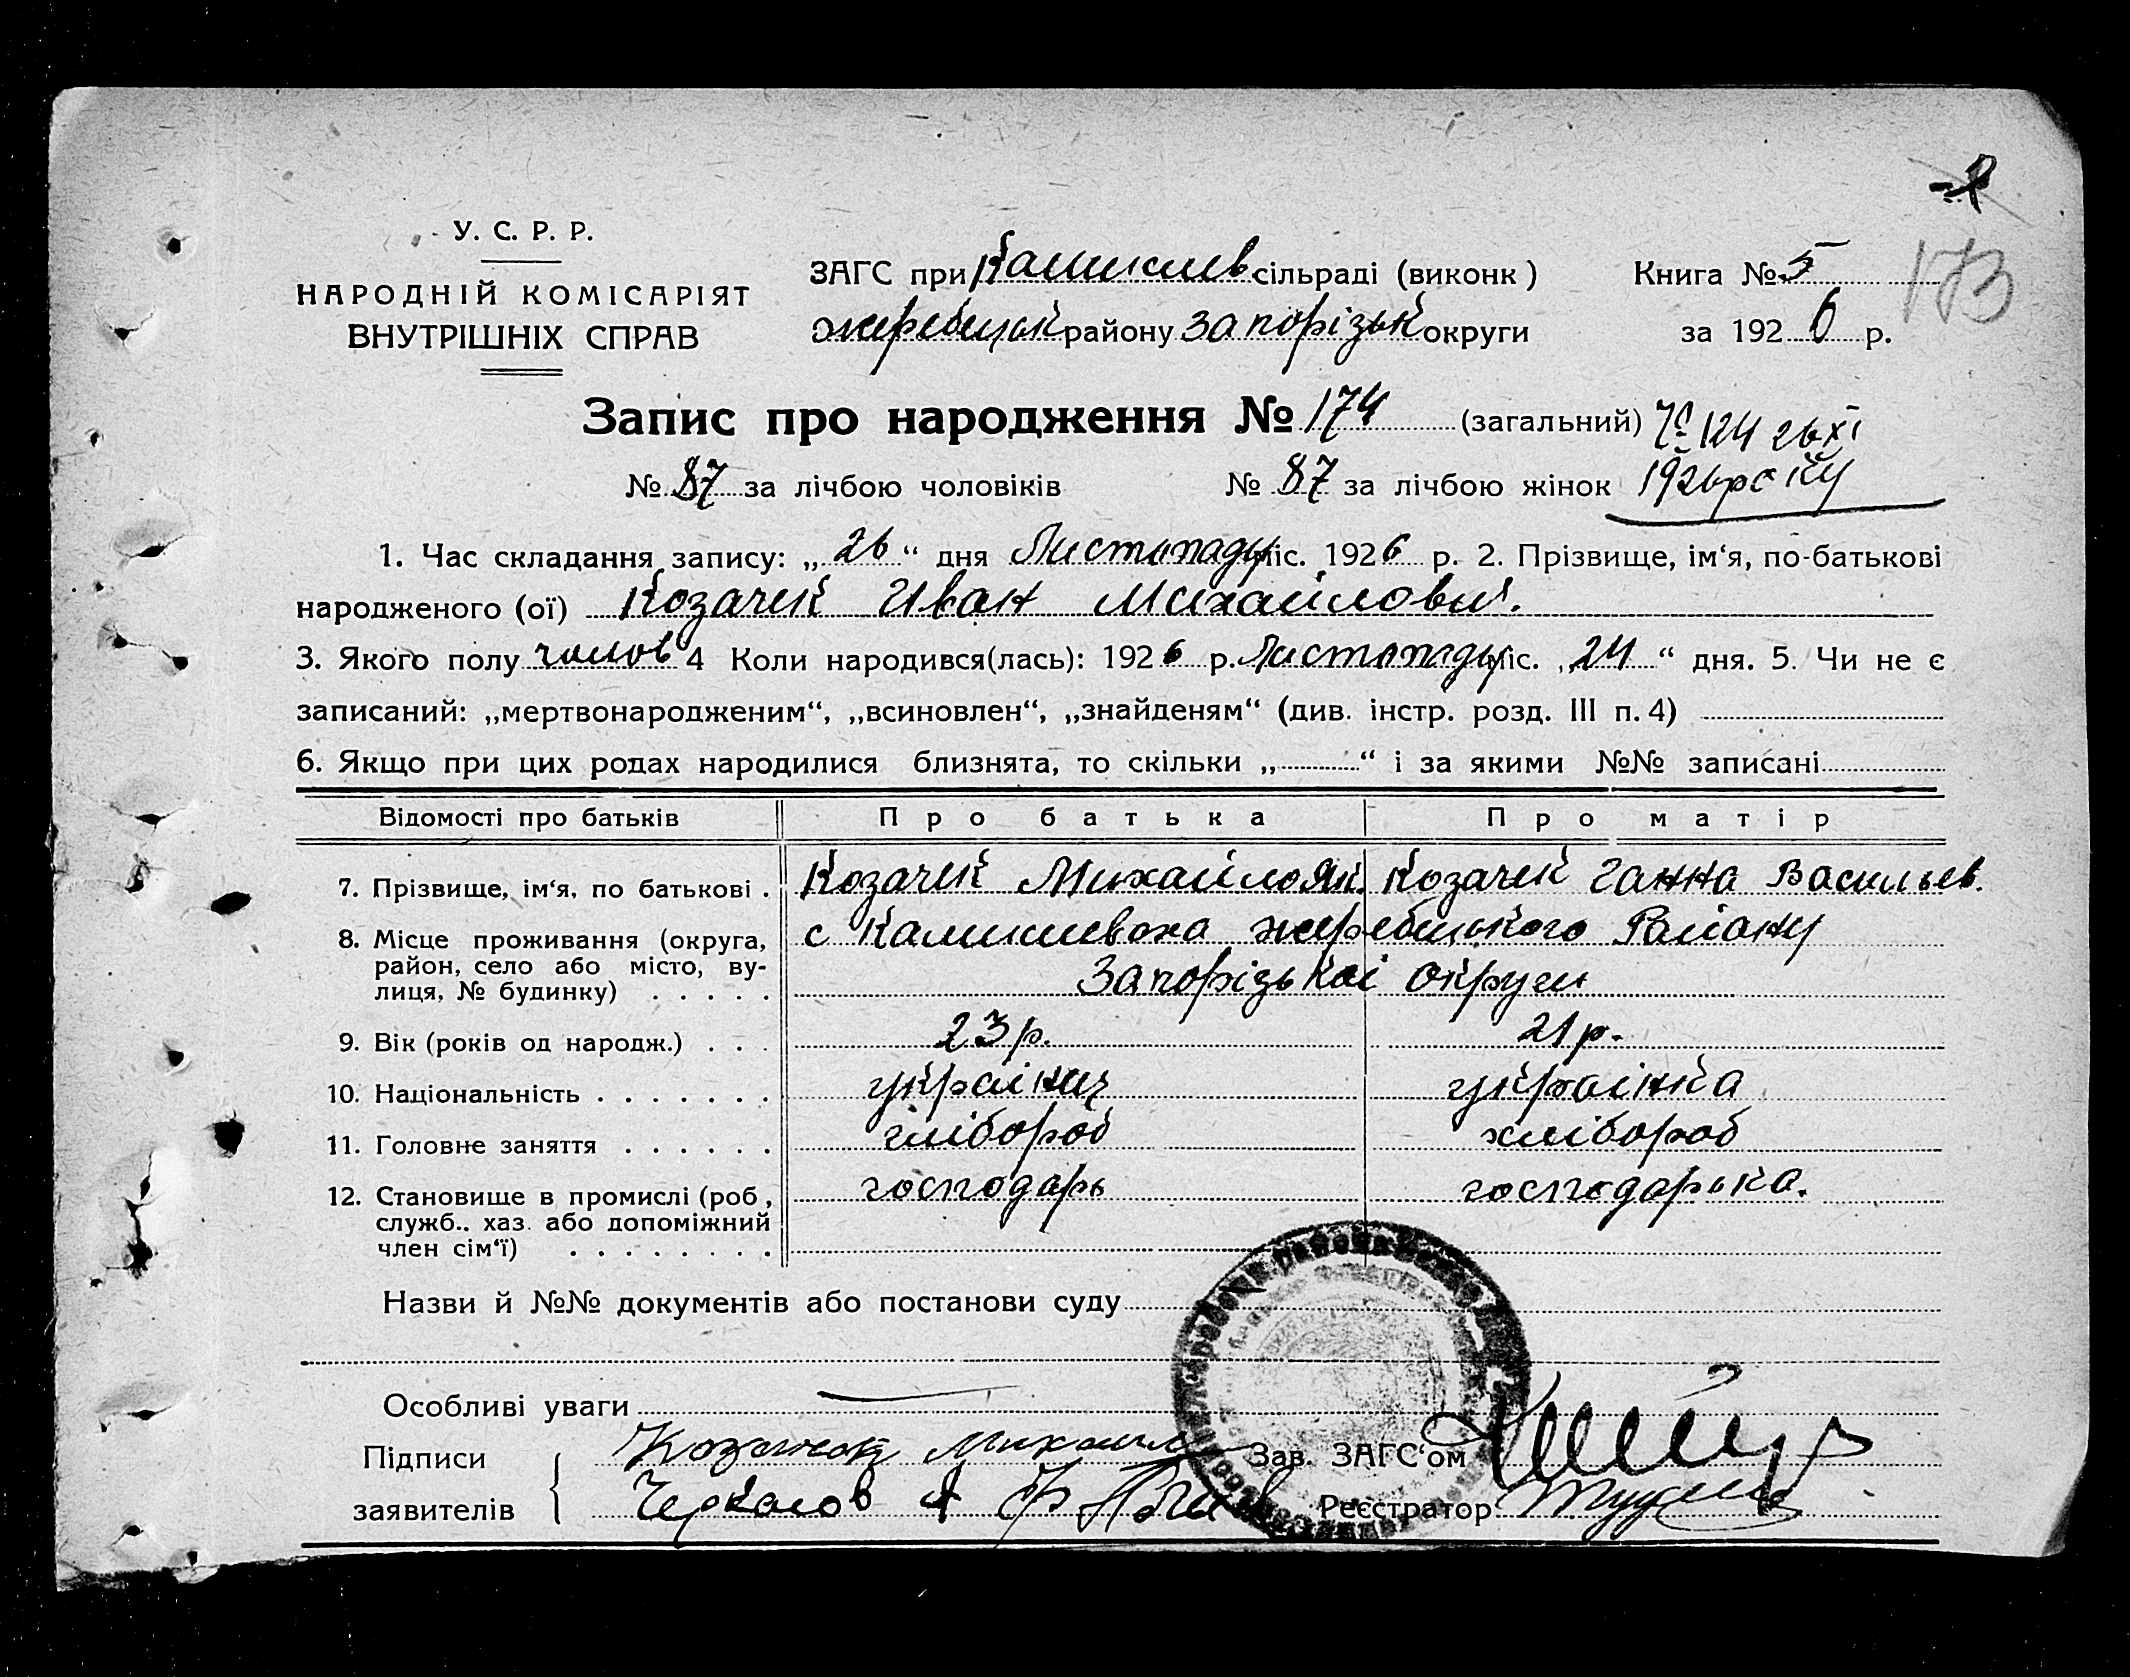 173
У. С. Р. Р.
НАРОДНІЙ КОМІСАРІЯТ
ВНУТРІШНІХ СПРАВ
ЗАГС при сільраді (виконк )
жеребецьк району Запорізьк округи
Книга № 5
за 1926 р.
Запис про народження № 174 (загальний) № 124 26 XI
№ 87 за лічбою чоловіків № 87 за лічбою жінок 1926 року
1. Час складання запису: „26“ дня Листопаду міс. 1926 р. 2. Прізвище, ім‘я, по-батькові
народженого (ої) Козачек Иван Михайлович.
3. Якого полу чолов 4 Коли народився(лась): 1926 р. Листопаду міс. „24“ дня. 5. Чи не є
записаний: „мертвонародженим“, „всиновлен“, „знайденям“ (див. інстр. розд. III п. 4)
6. Якщо при цих родах народилися близнята, то скільки „ “ і за якими №№ записані
Відомості про батьків Про батька Про матір
7. Прізвище, ім‘я, по батькові . Козачек Михайло Як. Козачек Ганна Васильев.
8. Місце проживання (округа, с жеребецького Району
район, село або місто, ву-
лиця, № будинку) . . . . . Запорізької округи
9. Вік (років од народж.) . . . 23 р. 21 р.
10. Національність . . . . . . . українец українка
11. Головне заняття . . . . . . хлібороб хлібороб
12. Становище в промислі (роб , господарь господарька.
служб.. хаз. або допоміжний
член сім‘ї) . . . . . . . .
Назви й №№ документів або постанови суду
Особливі уваги
Підписи Козачек Михаил Зав. ЗАГС‘ом
заявителів Черкасов А Реєстратор